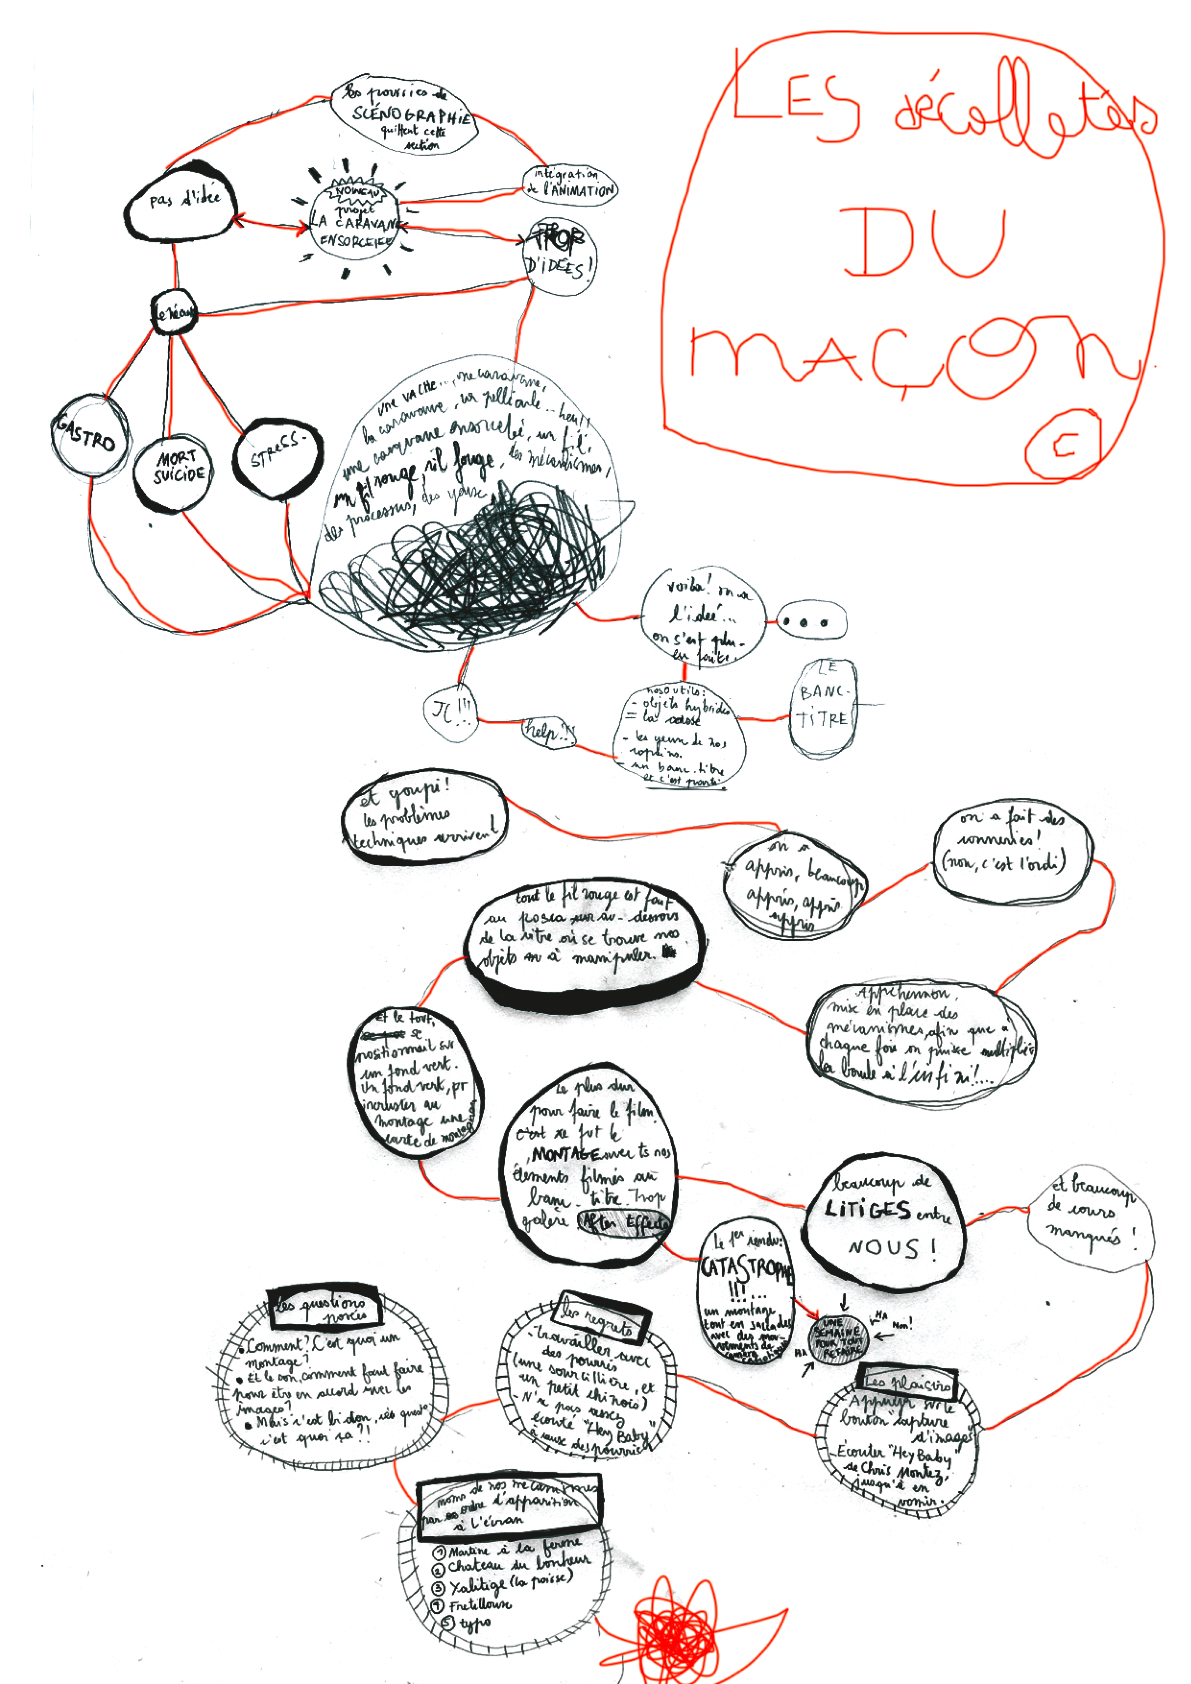 LES décolletés
DU
MAÇON
C
les poussies de
SCÉNOGRAPHIE
quittent cette
section
intégration
de l'ANIMATION
pas d'idée
NOUVEAU
projet
LA CARAVANE
ENSORCELEE
TROP
D'IDÉES!
Le néant
GASTRO
MORT
SUICIDE
STRESS.
UNE VACHE..., une caravane,
la caravane, un pellicule... heu!!
une caravane ensorcelée, un fil,
un fil rouge, fil rouge, les mécanismes,
des processus, des yeux
voila! on a
l'idée...
on s'est plu-
en faite.
...
JC!!!
help!!!
nos outils:
- objets hybrides
= la casse
- les yeux de nos
copains.
- un banc-titre
et c'est parti.
LE
BANC-
TITRE
et youpi!
les problèmes
techniques arrivent!
on a
appris, beaucoup
appris, appris
appris
on a fait des
conneries!
(non, c'est l'ordi)
tout le fil rouge est fait
au posca sur au-dessous
de la vitre où se trouve nos
objets à manipuler.
Appréhension,
mise en place des
mécanismes, afin que à
chaque fois on puisse multiplier
la boule à l'infini!...
Et le tout,
se
positionnait sur
un fond vert.
Un fond vert, pr
incruster au
montage une
carte de montagnes
Le plus dur
pour faire le film
c'est ce fut le
MONTAGE avec ts nos
élements filmés au
banc-titre. Trop
galère After Effects
beaucoup de
LITIGES entre
NOUS!
et beaucoup
de cours
manqués!
Le 1er rendu:
CATASTROPHE
!!!...
un montage
tout en saccades
avec des mou-
vements de
caméra
UNE
SEMAINE
POUR TOUT
REFAIRE
HA
Non!
HA
Les questions
posées
• Comment? C'est quoi un
montage?
• Et le son, comment faut faire
pour être en accord avec les
images?
• Mais c'est bidon, ces quest.
c'est quoi ça?!
les regrets
- Travailler avec
des pourris
(une sourcillière, et
un petit chinois)
- N'a pas assez
écouté "Hey Baby"
à cause des pourris
Les plaisirs
Appuyer sur le
bouton "capture
d'image"
- Ecouter "Hey Baby"
de Chris Montez,
jusqu'à en
vomir.
noms de nos mécanismes
par ordre d'apparition
à l'écran
1 Martine à la ferme
2 Chateau du bonheur
3 Xalitige (la poisse)
4 Fretillouse
5 typo